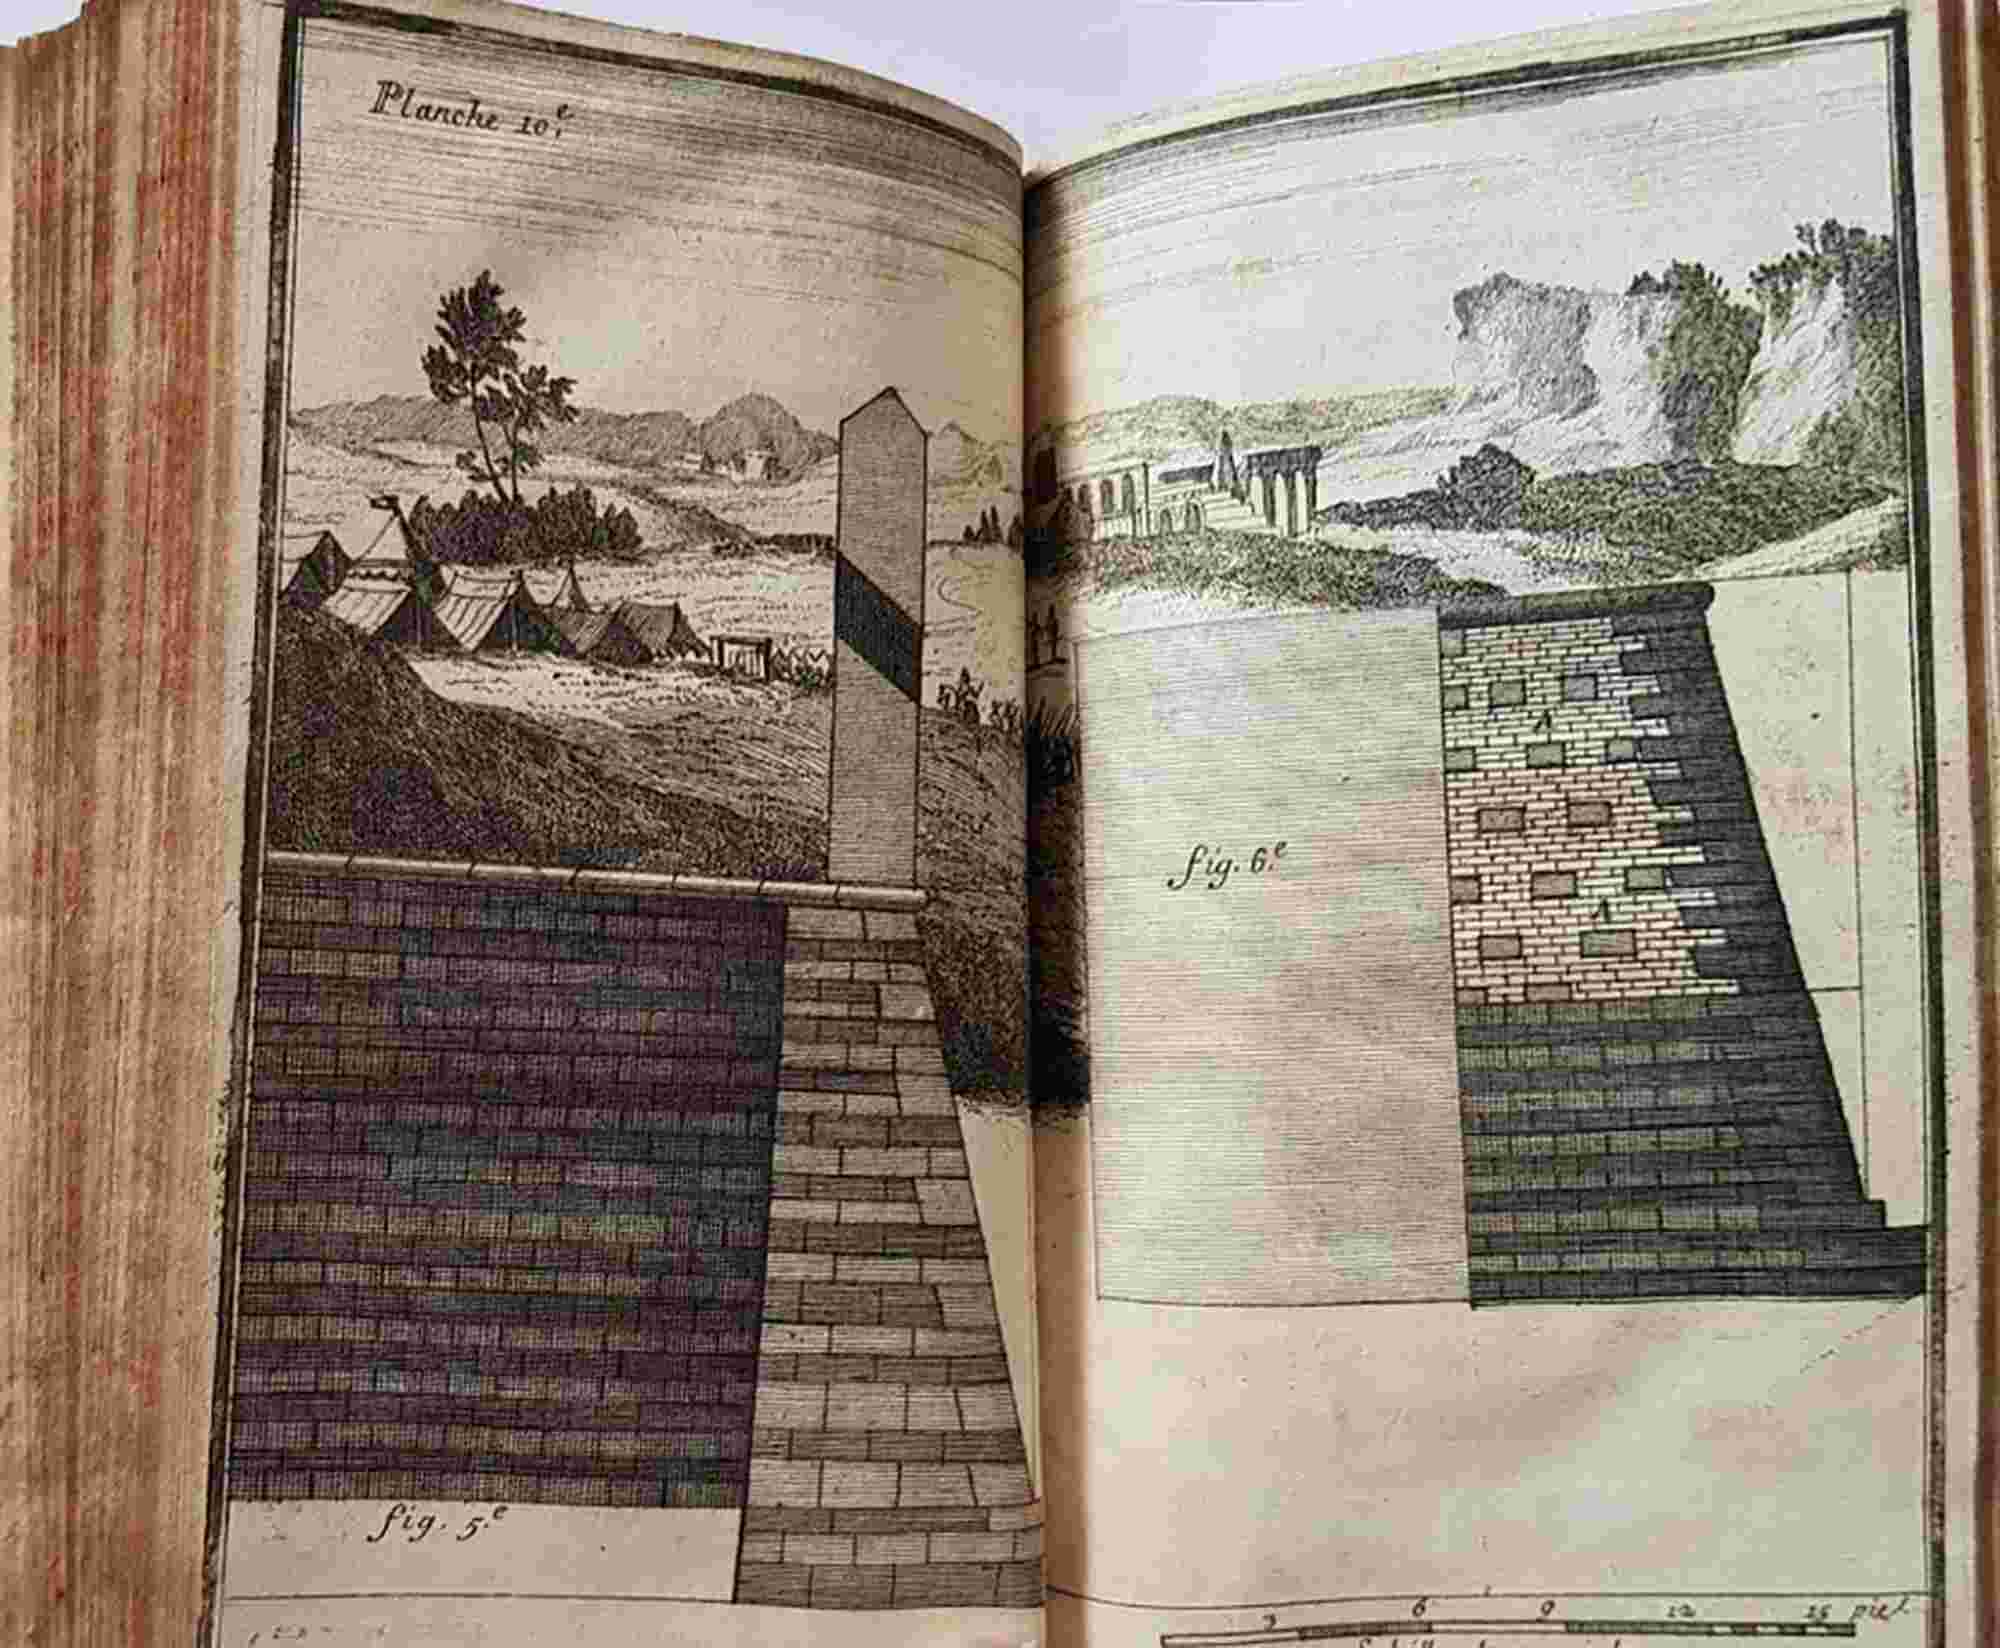 Planche 10.e
fig. 6.e
A
A
fig. 5.e
3 6 9 12 15 pie